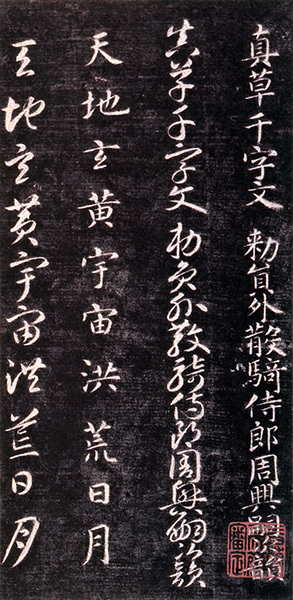 真草千字文 勅員外散騎侍郎周興嗣次韻
真草千字文 勅員外散騎侍郎周興嗣次韻
天地玄黃宇宙洪荒日月
天地玄黃宇宙洪荒日月